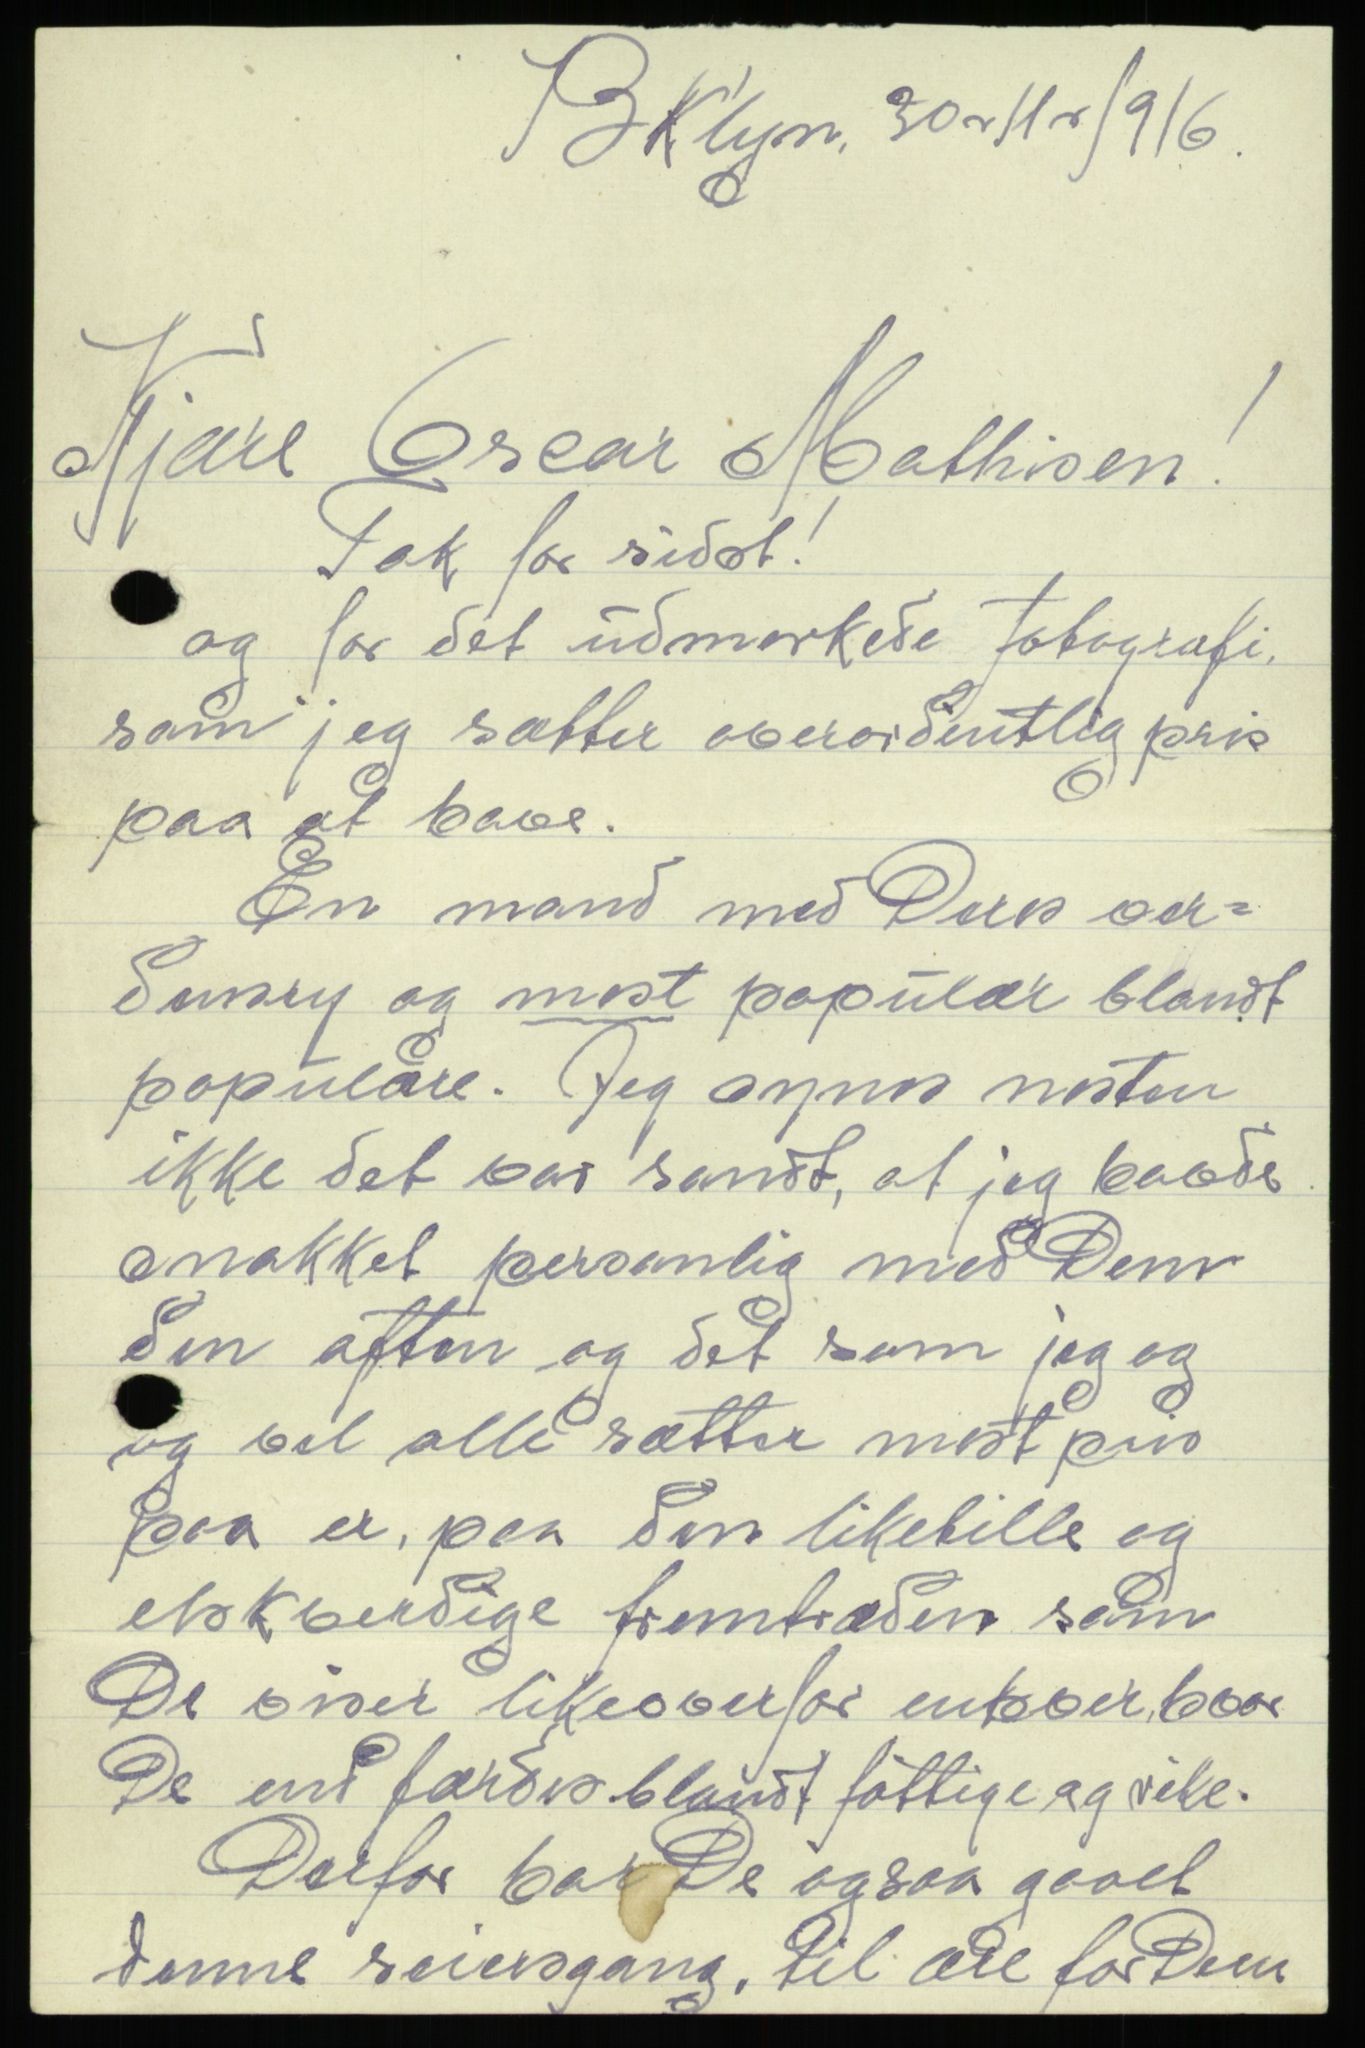 BKlyn, 30-/1-/916.
Kjære Oscar Mathisen!
Tak for sidst!
og for det udmerkede fotografi,
som jeg sætter overordentlig pris
paa at have.
En mand med Deres ver=
densry og mest populær blandt
populære. Jeg synes nesten
ikke det var sandt, at jeg havde
snakket personlig med Dem
den aften og det som jeg og
og vel alle sætter mest pris
paa er, paa den liketille og
elskverdige fremtræden som
De viser likeoverfor enhver, hvor
De end færdes blandt fattige og rike.
Derfor har De ogsaa gaaet
denne seiersgang, til ære for Dem